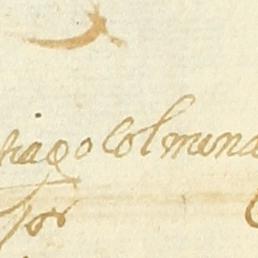 tiago Colmena
Por